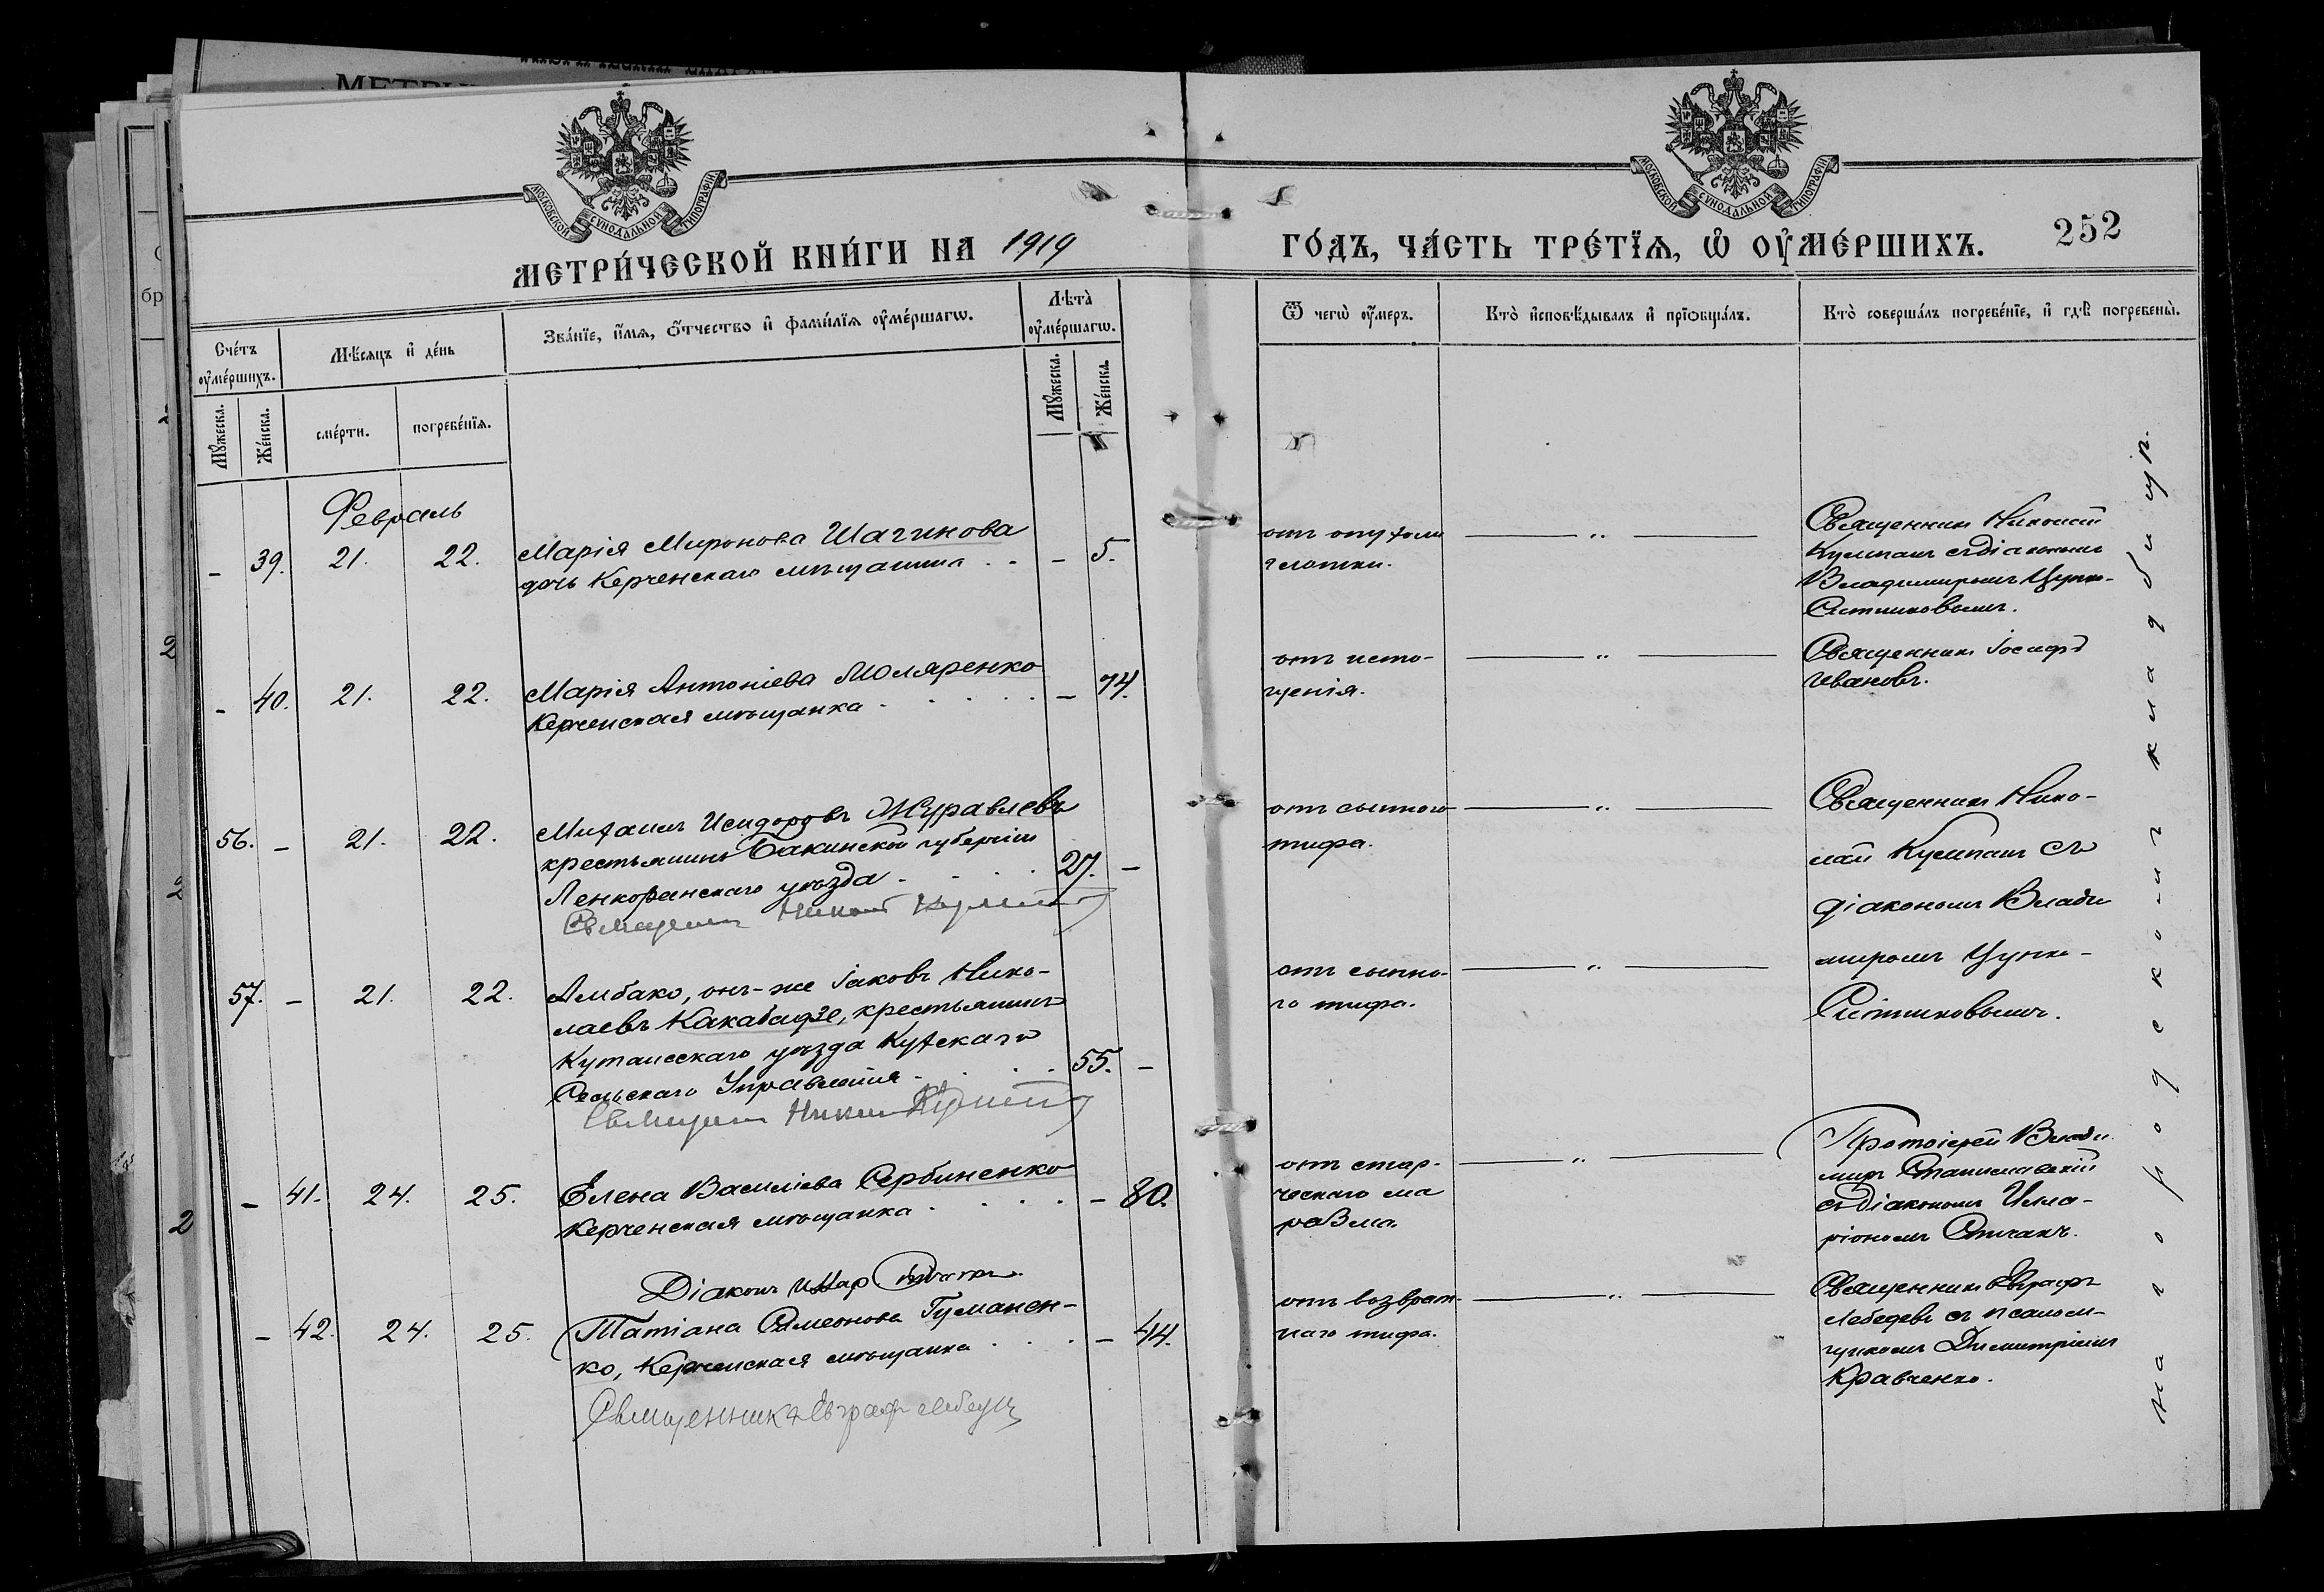 МЕТРИ́ЧЕСКОЙ КНИ́ГИ НА 1919
ГО́ДЪ, ЧА́СТЬ ТРЕ́ТЇѦ, Ѡ҆ ОУ҆МЕ́РШИХЪ.
252
МОСКОВСКОЙ СѴНОДАЛЬНОЙ ТИПОГРАФІИ
МОСКОВСКОЙ СѴНОДАЛЬНОЙ ТИПОГРАФІИ
Сче́тъ оу҆ме́ршихъ.
Мꙋ́жеска.
Же́нска.
Мѣ́сяцъ и҆ де́нь
сме́рти.
погребе́нїѧ.
Зва́нїе, и҆́мѧ, ѻ҆́тчество и҆ фами́лїѧ оу҆ме́ршагѡ.
Лѣта̀ оу҆ме́ршагѡ.
Мꙋ́жеска.
Же́нска.
Ѿ чегѡ̀ оу҆́меръ.
Кто̀ и҆сповѣ́дывалъ и҆ прїѻбща́лъ.
Кто̀ соверша́лъ погребе́нїе, и҆ гдѣ̀ погребены̀.
Февраль
- 39. 21. 22. Марія Миронова Шагинова
дочь Керченскаго мѣщанина . . - 5.
отъ опухоли
глотки.
— „ —
Священникъ Николай
Кульпаш съ діакономъ
Владимиромъ Цупко-
Ситниковымъ.
- 40. 21. 22. Марія Антоніева Моляренко
Керченская мѣщанка . . . . . - 74.
отъ исто-
щенія.
— „ —
Священникъ Іосифъ
Ивановъ.
56. - 21. 22. Михаилъ Исидоровъ Журавлевъ
крестьянинъ Бакинской губерніи
Ленкоранскаго уѣзда . . . . 27. -
отъ сыпного
тифа.
— „ —
Священникъ Нико-
лай Кульпаш съ
діакономъ Влади
миромъ Цупко-
Ситниковымъ.
57. - 21. 22. Амбако, онъ-же Іаковъ Нико-
лаевъ Какабадзе, крестьянинъ
Кутаисскаго уѣзда Кухскаго
Сельскаго Управленія . . . . 55. -
отъ сыпно-
го тифа.
— „ —
- 41. 24. 25. Елена Василіева Сербиненко
Керченская мѣщанка . . . . - 80.
отъ стар-
ческаго ма
разма.
— „ —
Протоіерей Влади
миръ Станиславскій
съ діакономъ Илла-
ріономъ
Діаконъ
- 42. 24. 25. Татіана Симеонова Гуманен-
ко, Керченская мѣщанка . . . - 44.
Священникъ Евграф Лебедевъ
отъ возврат-
наго тифа.
— „ —
Священникъ Евграфъ
Лебедевъ съ псалом-
щикомъ Димитріемъ
Кравченко.
на городскомъ кладбищѣ.